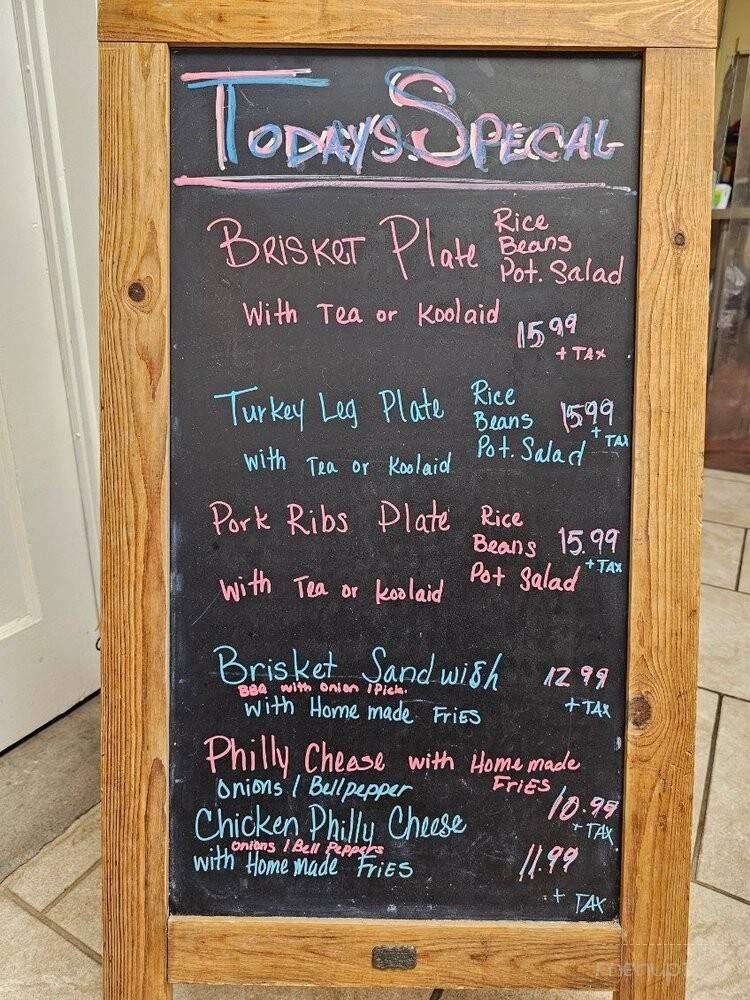 TODAY'S SPECAL
BRISKET Plate Rice
Beans
Pot. Salad
With Tea or Koolaid
15.99
+ TAX
Turkey Leg Plate Rice
Beans 15.99
+ TAX
Pot. Salad
with Tea or Koolaid
Pork Ribs Plate Rice
Beans 15.99
+ TAX
Pot Salad
with Tea or Koolaid
Brisket Sandwish 12.99
BBQ with Onion / Pick.
+ TAX
with Home made FriES
Philly Cheese with Home made
FriES
Onions / Bellpepper
10.99
+ TAX
Chicken Philly Cheese
Onions / Bell Peppers
with Home made FriES 11.99
+ TAX